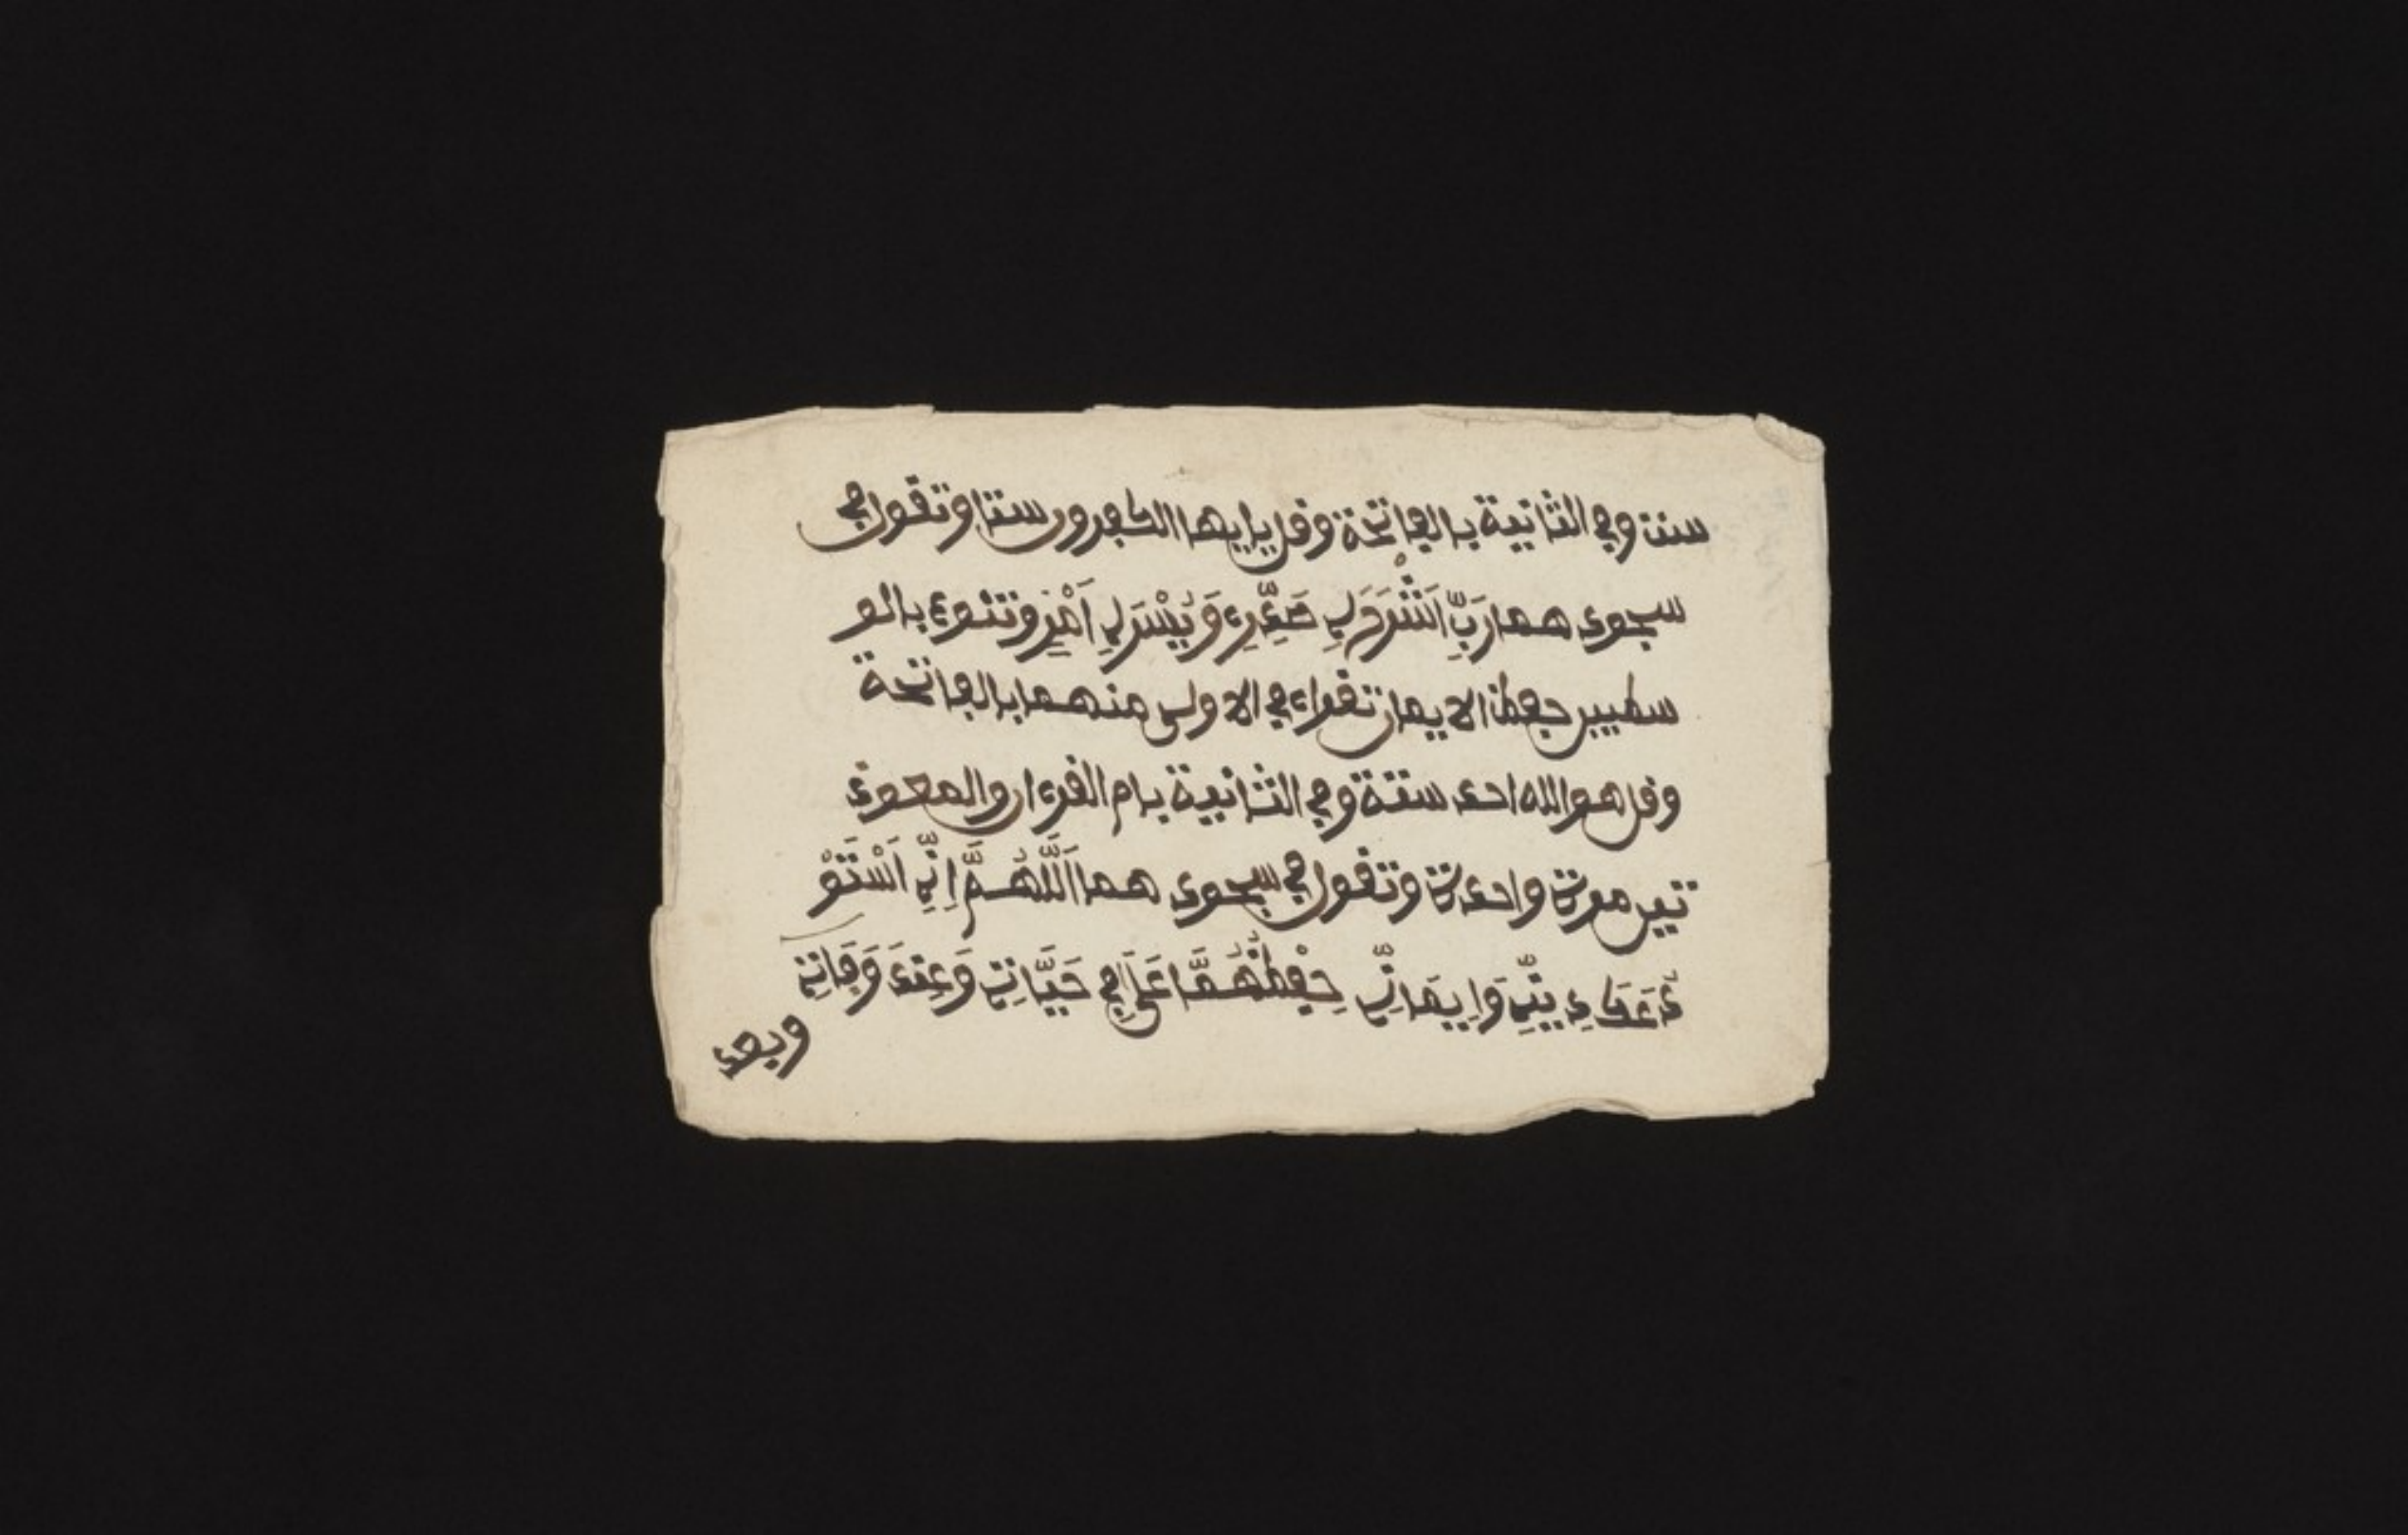 ستت وفي الثانية بالفاتحة وقل يايها الكفرون ستا وتقول في
سجود همما رَبِّ اَشْرَحْ لِي صَدْرِي وَيَسِّرْ لِي اَمْرِي وتنوي بالو
سطيين حفظ الايمان تقراء في الاولى منهمما بالفاتحة
وقل هو الله احد ستة وفي الثانية بام القرءان والمعوذ
تين مرة واحدة وتقول في سجود همما اَللَّهُمَّ اِنِّي اَسْتَوْ
دَعَكَ دِينِي وَاِيمَانِي حِفْظْهُمَا عَلَيَّ فِي حَيَاتِي وَعِنْدَ وَفَاتِي
وبعد